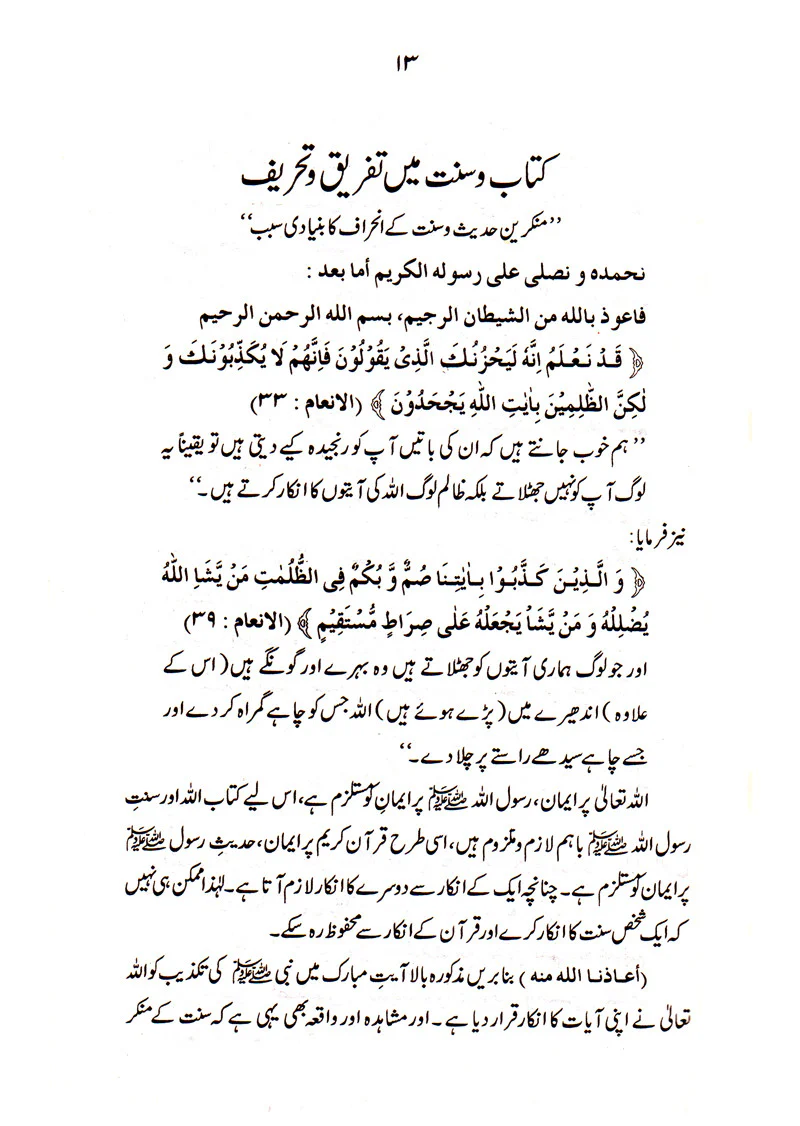 ۱۳
کتاب و سنت میں تفریق و تحریف
’’منکرین حدیث و سنت کے انحراف کا بنیادی سبب‘‘
نحمده و نصلى على رسوله الكريم أما بعد :
فاعوذ بالله من الشيطان الرجيم، بسم الله الرحمن الرحيم
﴿ قَدْ نَعْلَمُ اِنَّهٗ لَيَحْزُنُكَ الَّذِىْ يَقُوْلُوْنَ فَاِنَّهُمْ لَا يُكَذِّبُوْنَكَ وَ
لٰكِنَّ الظّٰلِمِيْنَ بِاٰيٰتِ اللّٰهِ يَجْحَدُوْنَ ﴾ (الانعام : ۳۳)
’’ ہم خوب جانتے ہیں کہ ان کی باتیں آپ کو رنجیدہ کیے دیتی ہیں تو یقیناً یہ
لوگ آپ کو نہیں جھٹلاتے بلکہ ظالم لوگ اللہ کی آیتوں کا انکار کرتے ہیں۔‘‘
نیز فرمایا:
﴿ وَ الَّذِيْنَ كَذَّبُوْا بِاٰيٰتِنَا صُمٌّ وَّ بُكْمٌ فِى الظُّلُمٰتِ مَنْ يَّشَاِ اللّٰهُ
يُضْلِلْهُ وَ مَنْ يَّشَاْ يَجْعَلْهُ عَلٰى صِرَاطٍ مُّسْتَقِيْمٍ ﴾ (الانعام : ۳۹)
اور جو لوگ ہماری آیتوں کو جھٹلاتے ہیں وہ بہرے اور گونگے ہیں (اس کے
علاوہ) اندھیرے میں (پڑے ہوئے ہیں) اللہ جس کو چاہے گمراہ کر دے اور
جسے چاہے سیدھے راستے پر چلا دے۔‘‘
اللہ تعالیٰ پر ایمان، رسول اللہ ﷺ پر ایمان کو مستلزم ہے، اس لیے کتاب اللہ اور سنتِ
رسول اللہ ﷺ باہم لازم و ملزوم ہیں، اسی طرح قرآن کریم پر ایمان، حدیثِ رسول ﷺ
پر ایمان کو مستلزم ہے۔ چنانچہ ایک کے انکار سے دوسرے کا انکار لازم آتا ہے۔ لہٰذا ممکن ہی نہیں
کہ ایک شخص سنت کا انکار کرے اور قرآن کے انکار سے محفوظ رہ سکے۔
(أعاذنا الله منه) بنا بریں مذکورہ بالا آیتِ مبارک میں نبی ﷺ کی تکذیب کو اللہ
تعالیٰ نے اپنی آیات کا انکار قرار دیا ہے۔ اور مشاہدہ اور واقعہ بھی یہی ہے کہ سنت کے منکر